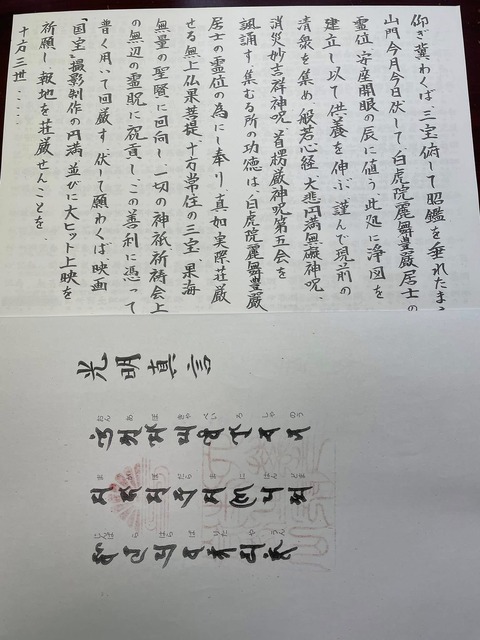 仰ぎ冀わくば三宝俯して昭鑑を垂れたま
山門今月今日伏して、白虎院麗舞豊嚴居士の
霊位、安座開眼の辰に値う此処に浄図を
建立し以て供養を伸ぶ、謹んで現前の
清衆を集め般若心経、大悲円満無礙神呪、
消災妙吉祥神呪、首楞厳神呪第五会を
諷誦す、集むる所の功徳は、白虎院麗舞豊嚴
居士の霊位の為にし奉り、真如実際荘厳
せる無上仏果菩提、十方常住の三宝、果海
無量の聖賢に回向し、一切の神祇祈祷会上
の無辺の霊貺に祝貢し、この善利に憑って
普く用いて回厳す、伏して願わくば映画
「国宝」撮影制作の円満並びに大ヒット上映を
祈願し報地を荘厳せんことを.
十方三世‥‥
光明真言
おん あ ぼ きゃ べい ろ しゃ のう
ま か ぼ だら ま に はん どま
じんば ら はら ば りた や うん